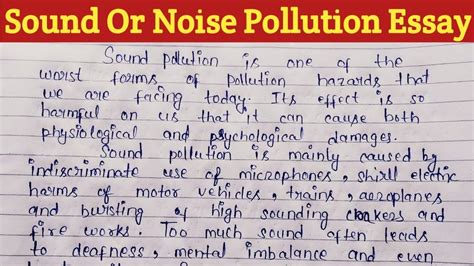 Sound Or Noise Pollution Essay
Sound pollution is one of the
worst forms of pollution hazards that
we are facing today. Its effect is so
harmful on us that it can cause both
physiological and psychological damages.
Sound pollution is mainly caused by
indiscriminate use of microphones, shirll electric
harms of motor vehicles, trains, aeroplanes
and bursting of high sounding crackers and
fire works. Too much sound often leads
to deafness, mental imbalance and even